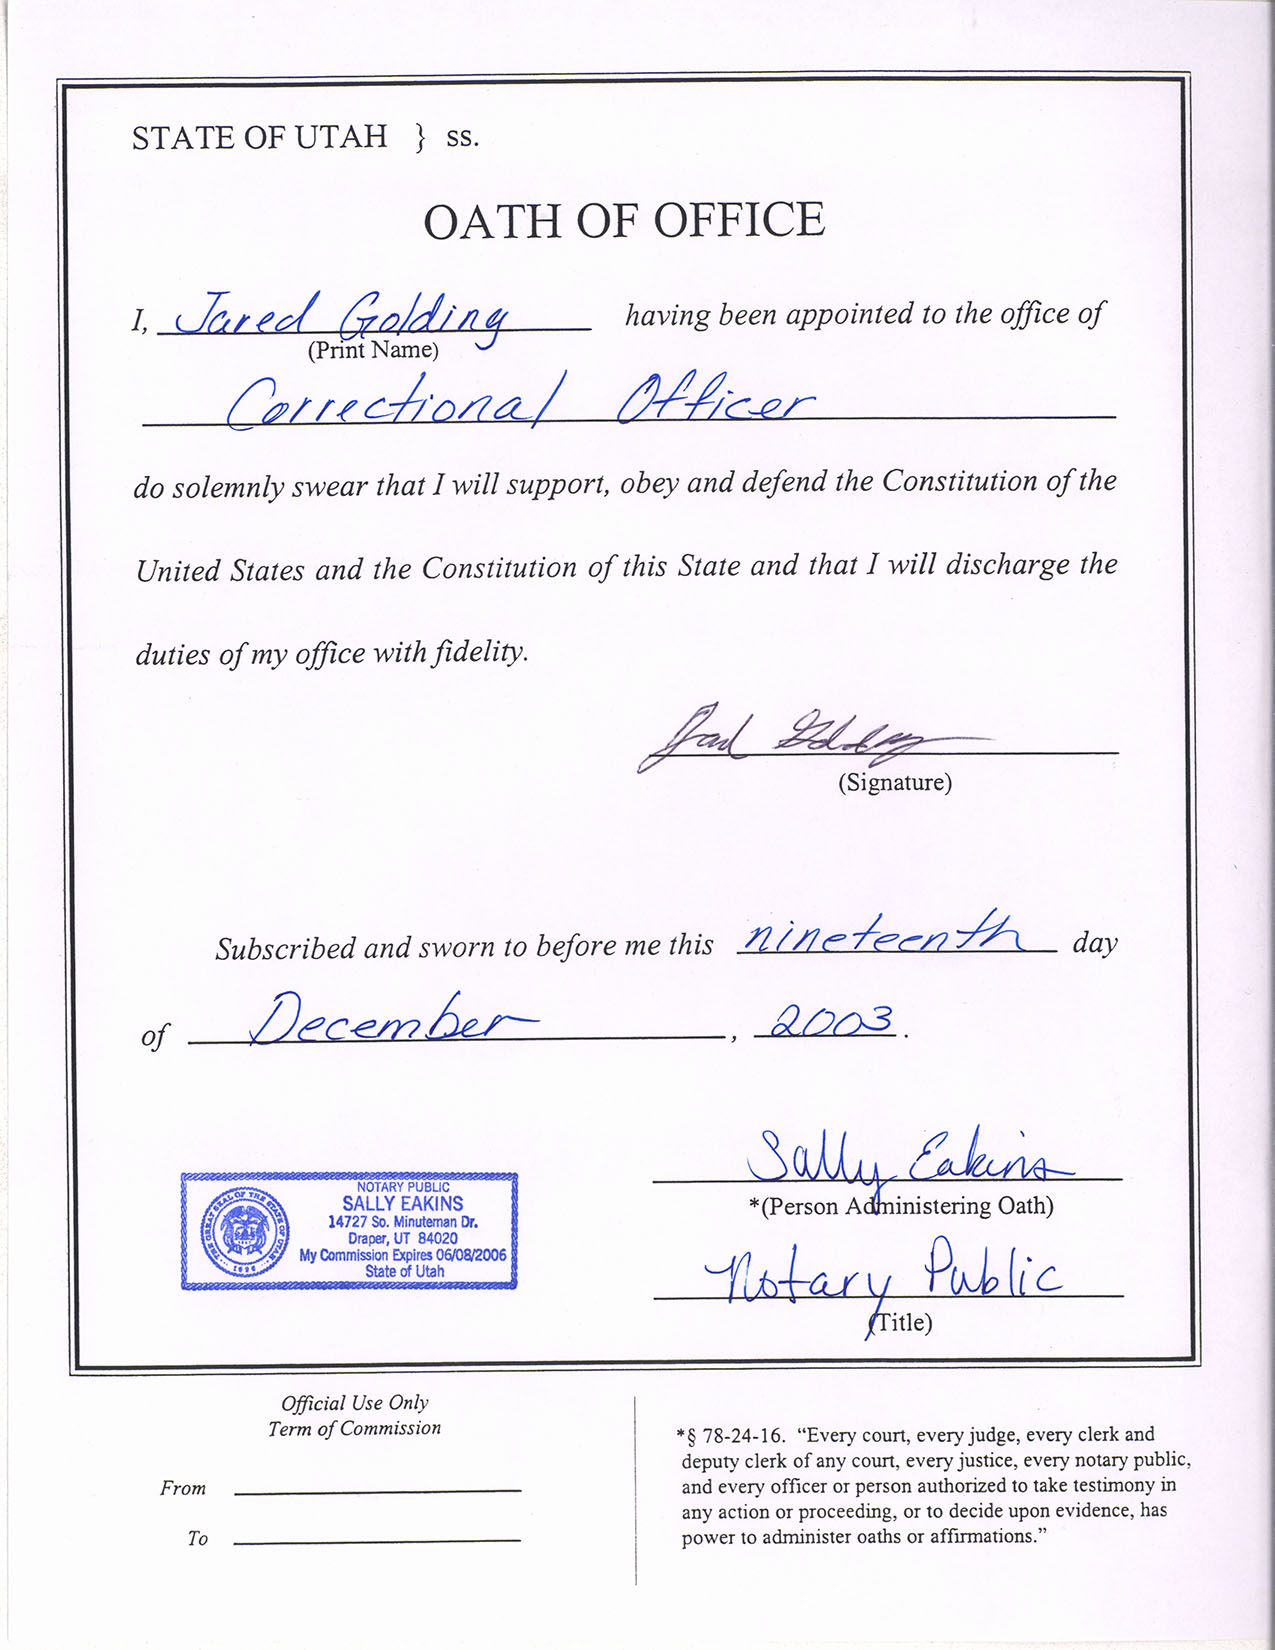 STATE OF UTAH } ss.
OATH OF OFFICE
I, Jared Golding having been appointed to the office of
(Print Name)
Correctional Officer
do solemnly swear that I will support, obey and defend the Constitution of the
United States and the Constitution of this State and that I will discharge the
duties of my office with fidelity.
Jared Golding
(Signature)
Subscribed and sworn to before me this nineteenth day
of December, 2003.
Sally Eakins
*(Person Administering Oath)
Notary Public
(Title)
THE GREAT SEAL OF THE STATE OF UTAH
1896
NOTARY PUBLIC
SALLY EAKINS
14727 So. Minuteman Dr.
Draper, UT 84020
My Commission Expires 06/08/2006
State of Utah
Official Use Only
Term of Commission
From
To
*§ 78-24-16. “Every court, every judge, every clerk and
deputy clerk of any court, every justice, every notary public,
and every officer or person authorized to take testimony in
any action or proceeding, or to decide upon evidence, has
power to administer oaths or affirmations.”